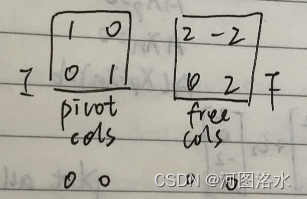 1 0 2 -2
I 0 1 0 2 F
pivot free
cols cols
0 0 0 0
CSDN @河图洛水